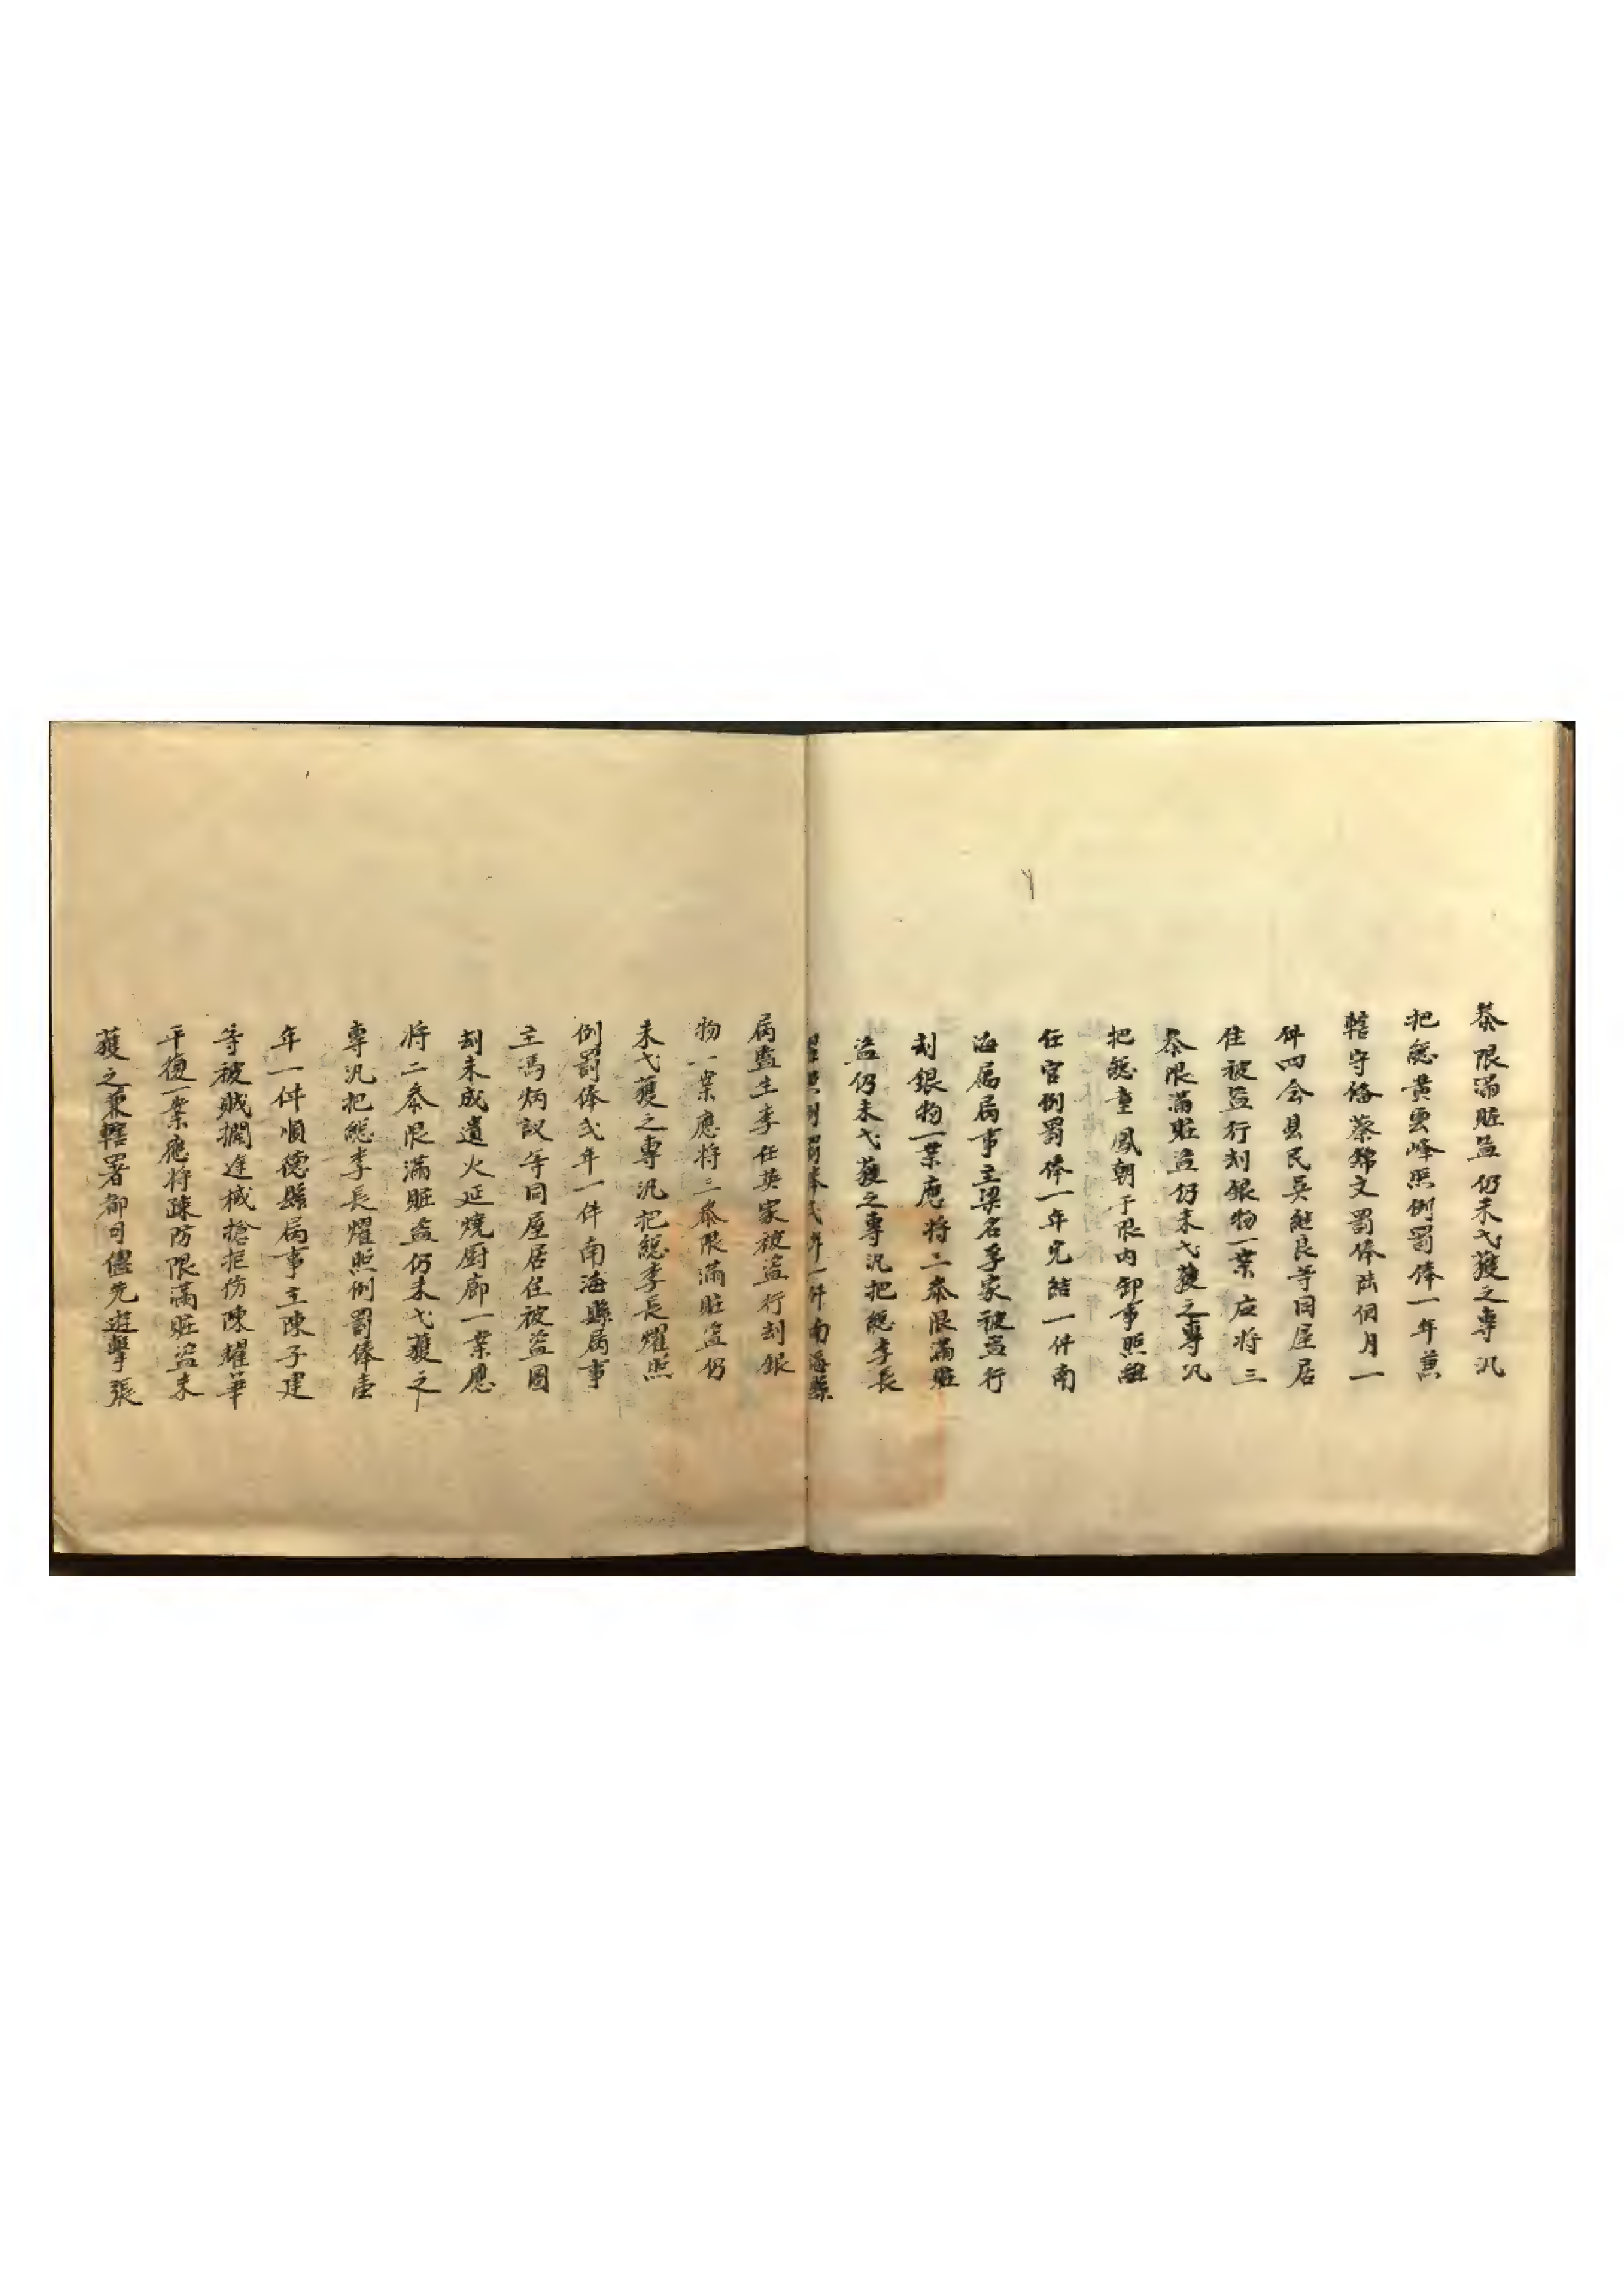 叅限滿賍盗仍未弋獲之專汛
把緫黃雲峰照例罰俸一年兼
轄守俻蔡錦文罰俸陆個月一
件四会县民吳継良等同屋居
住被盗行刦銀物一案应将三
叅限滿賍盗仍未弋獲之專汛
把緫童鳳朝于限内卸事照離
任官例罰俸一年完結一件南
海属事主梁名孚家被盗行
刦銀物一案應将二叅限滿賍
盗仍未弋獲之專汛把緫李長
耀照例罰俸弍年一件南海縣
属監生李任英家被盗行刦銀
物一案應将三叅限滿賍盗仍
未弋獲之專汛把緫李長耀照
例罰俸弍年一件南海縣属事
主馮炳議等同屋居住被盗圖
刦未成遺火延燒厨廊一案應
将二叅限滿賍盗仍未弋獲之
專汛把緫李長耀照例罰俸壹
年一件順德縣属事主陳子建
等被賊攔進械搶拒伤陳耀華
平復一案應将疎防限滿賍盗未
獲之兼轄署都司儘先遊擊張